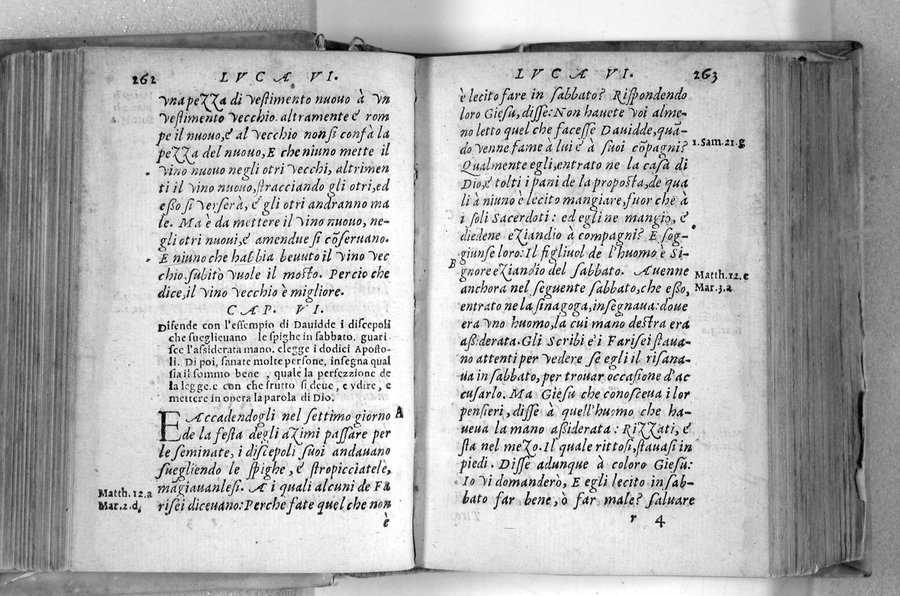 262 LVCAE VI.
vna peZZa di vestimento nuouo à vn
vestimento vecchio. altramente é rom
pe il nuouo, é al vecchio non si confà la
peZZa del nuouo, E che niuno mette il
vino nuouo negli otri vecchi, altrimen
ti il vino nuouo, stracciando gli otri, ed
esso si verserà, é gli otri andranno ma
le. Ma è da mettere il vino nuouo, ne-
gli otri nuoui, é amendue si cōseruano.
E niuno che habbia beuuto il vino vec
chio, subito vuole il mosto. Percio che
dice, il vino vecchio è migliore.
CAP. VI.
Difende con l'essempio di Dauidde i discepoli
che sueglieuano le spighe in sabbato. guari-
sce l'assiderata mano. elegge i dodici Aposto-
li. Di poi, sanate molte persone, insegna qual
sia il sommo bene, quale la perfezzione de
la legge. e con che frutto si deue, e vdire, e
mettere in opera la parola di Dio.
E Accadendogli nel settimo giorno A
de la festa degli aZimi passare per
le seminate, i discepoli suoi andauano
suegliendo le spighe, é stropicciatele,
māgiauanlesi. Æ i quali alcuni de Fa
risei diceuano: Perche fate quel che non
è
Matth. 12. a
Mar. 2. d,
LVCAE VI. 263
è lecito fare in sabbato? Rispondendo
loro Giesu, disse: Non hauete voi alme-
no letto quel che facesse Dauidde, quā-
do venne fame à lui é à suoi cōpagni?
1. Sam. 21. g
Qualmente egli, entrato ne la casa di
Dio, é tolti i pani de la proposta, de qua
li à niuno è lecito mangiare, fuor che à
i soli Sacerdoti: ed egli ne mangiò, é
diedene eZiandio à compagni? E sog-
giunse loro: Il figliuol de l'huomo è Si-
B gnore eZiandio del sabbato. Auenne
Matth. 12. c
anchora nel seguente sabbato, che esso,
Mar. 3. a
entrato ne la sinagoga, insegnaua: doue
era vno huomo, la cui mano destra era
assiderata. Gli Scribi é i Farisei staua-
no attenti per vedere se egli il risana-
ua in sabbato, per trouar occasione d'ac
cusarlo. Ma Giesu che conosceua i lor
pensieri, disse à quell'huomo che ha-
ueua la mano assiderata: RiZZati, é
sta nel meZo. Il quale rittosi, stauasi in
piedi. Disse adunque à coloro Giesu:
Io vi domanderò, E egli lecito in sab-
bato far bene, ò far male? saluare
r 4